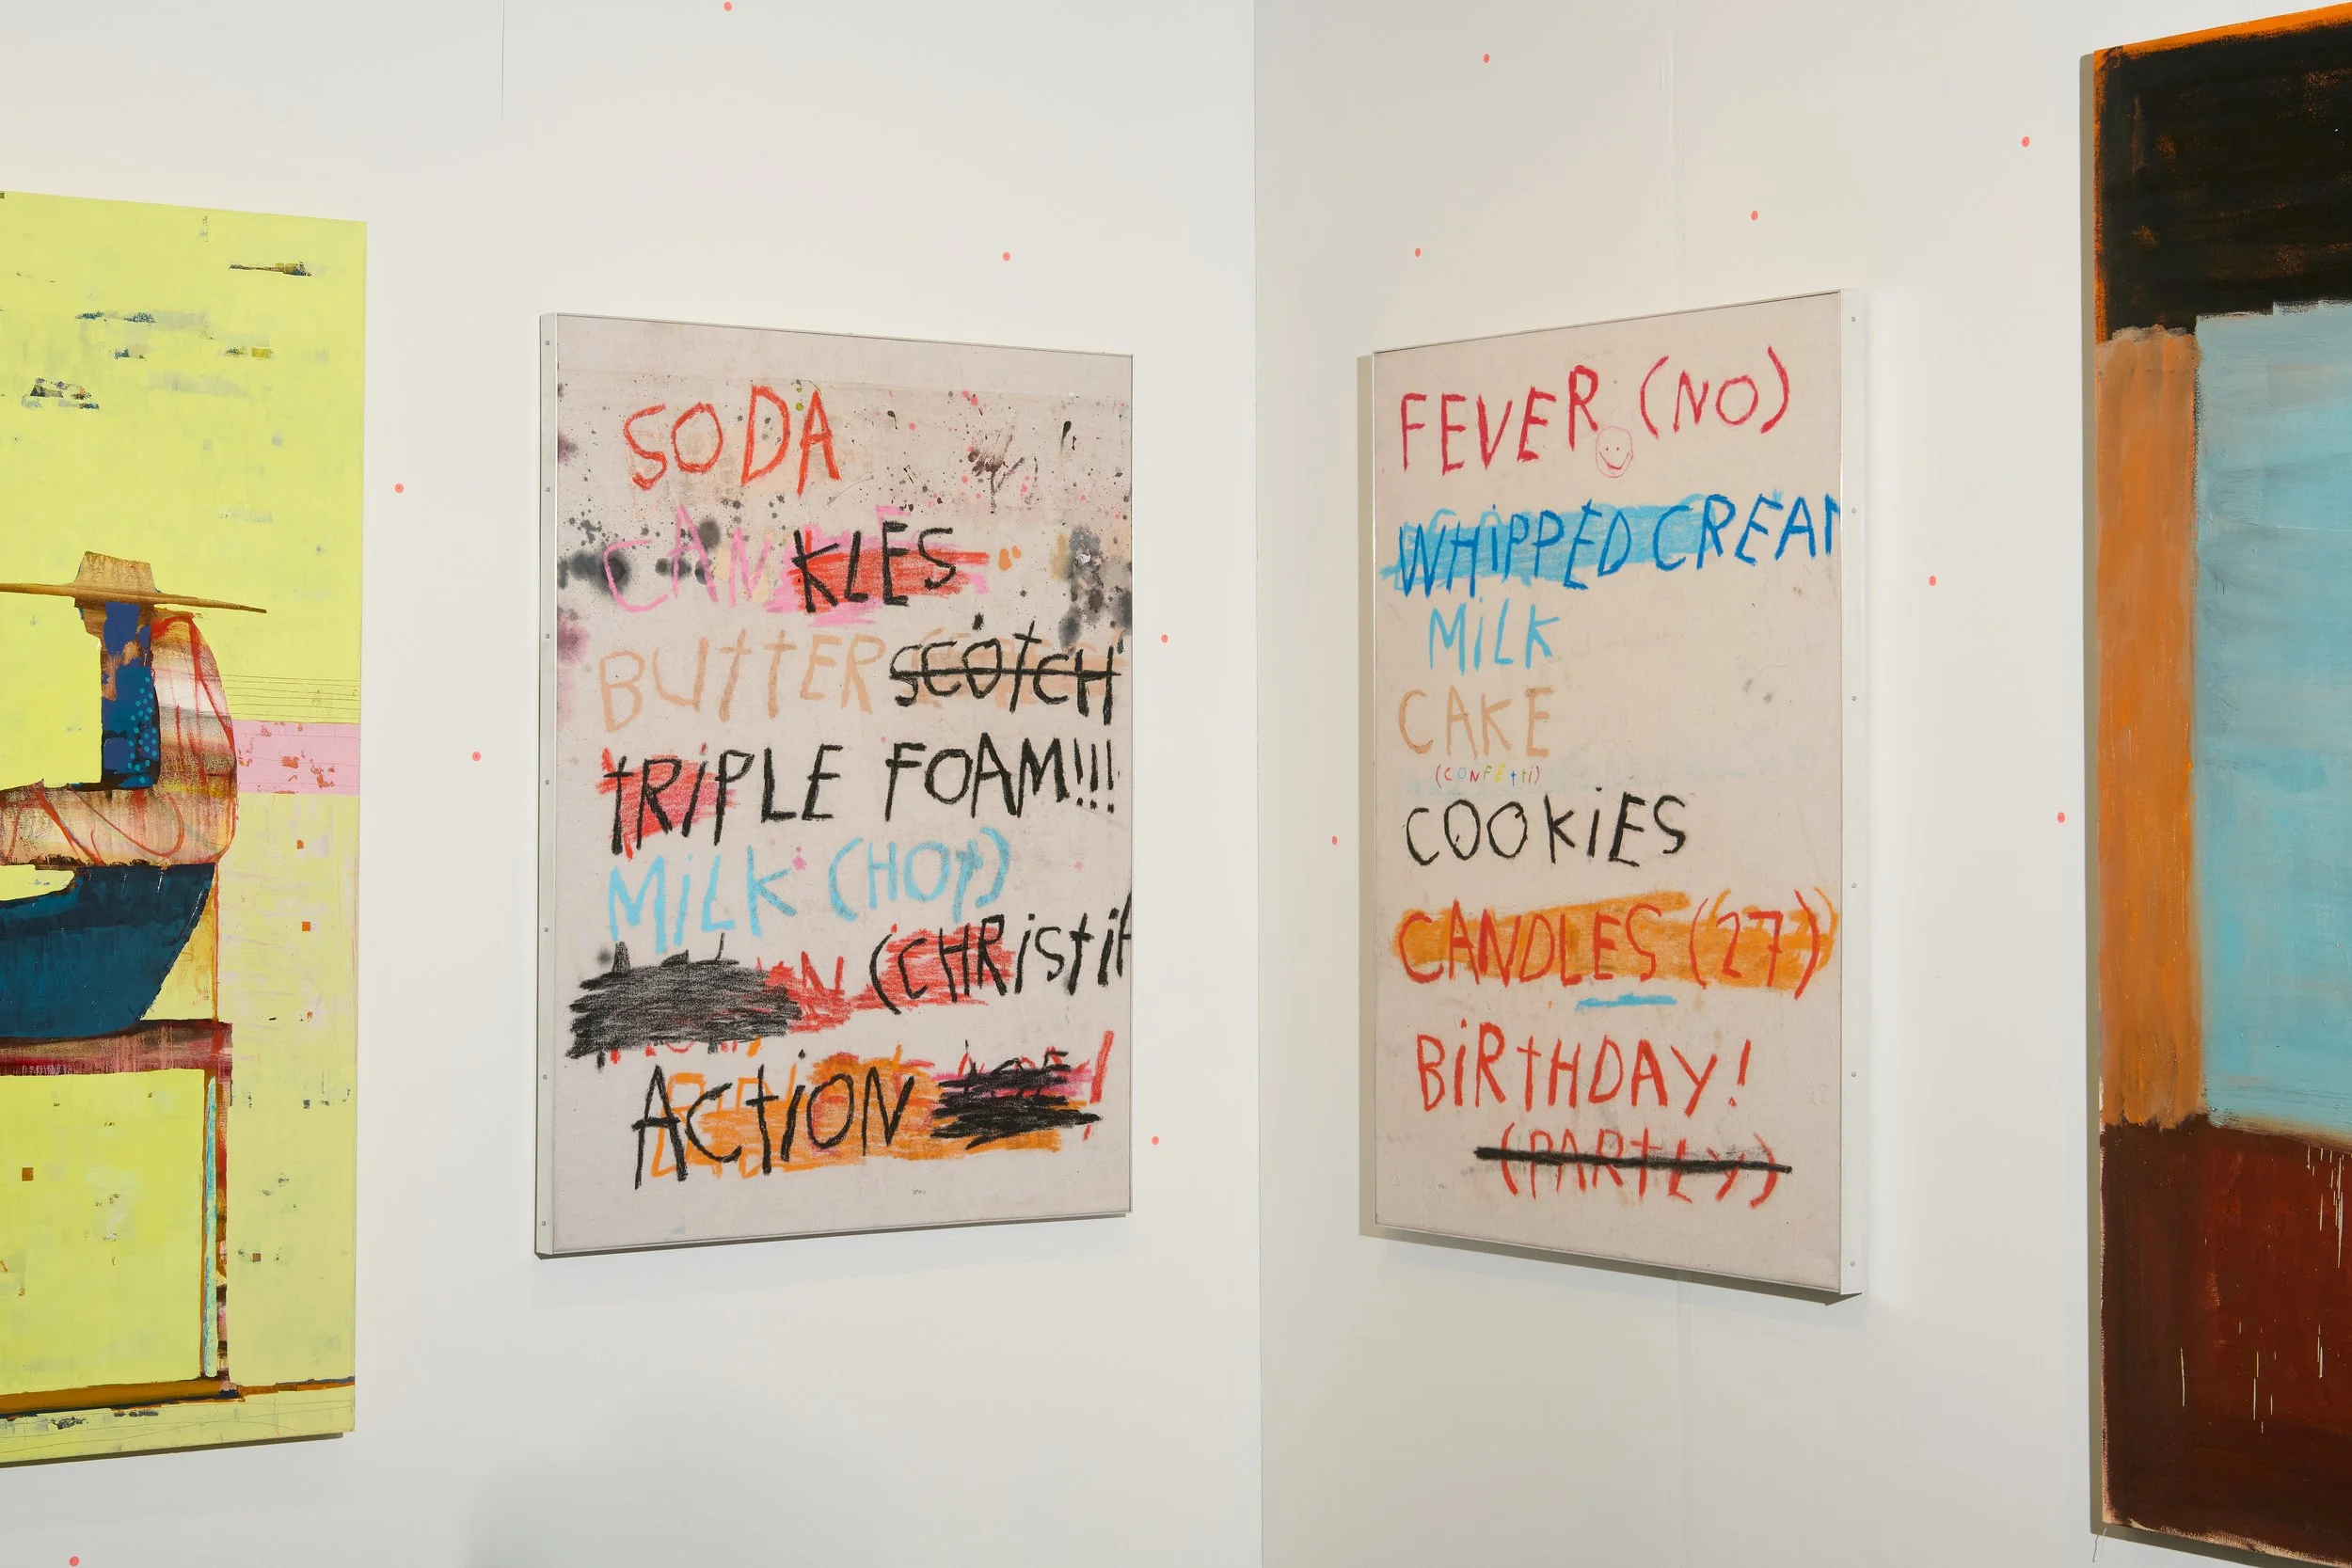 SODA
CANKLES
BUttER SCOtCH
tRiPLE FOAM!!!
MiLK (HOt)
(CHRiSti
ACtiON
FEVER (NO)
WHiPPED CREA
MiLK
CAKE
(CONFEtti)
COOKiES
CANDLES (27)
BiRtHDAY!
(PARtLY)